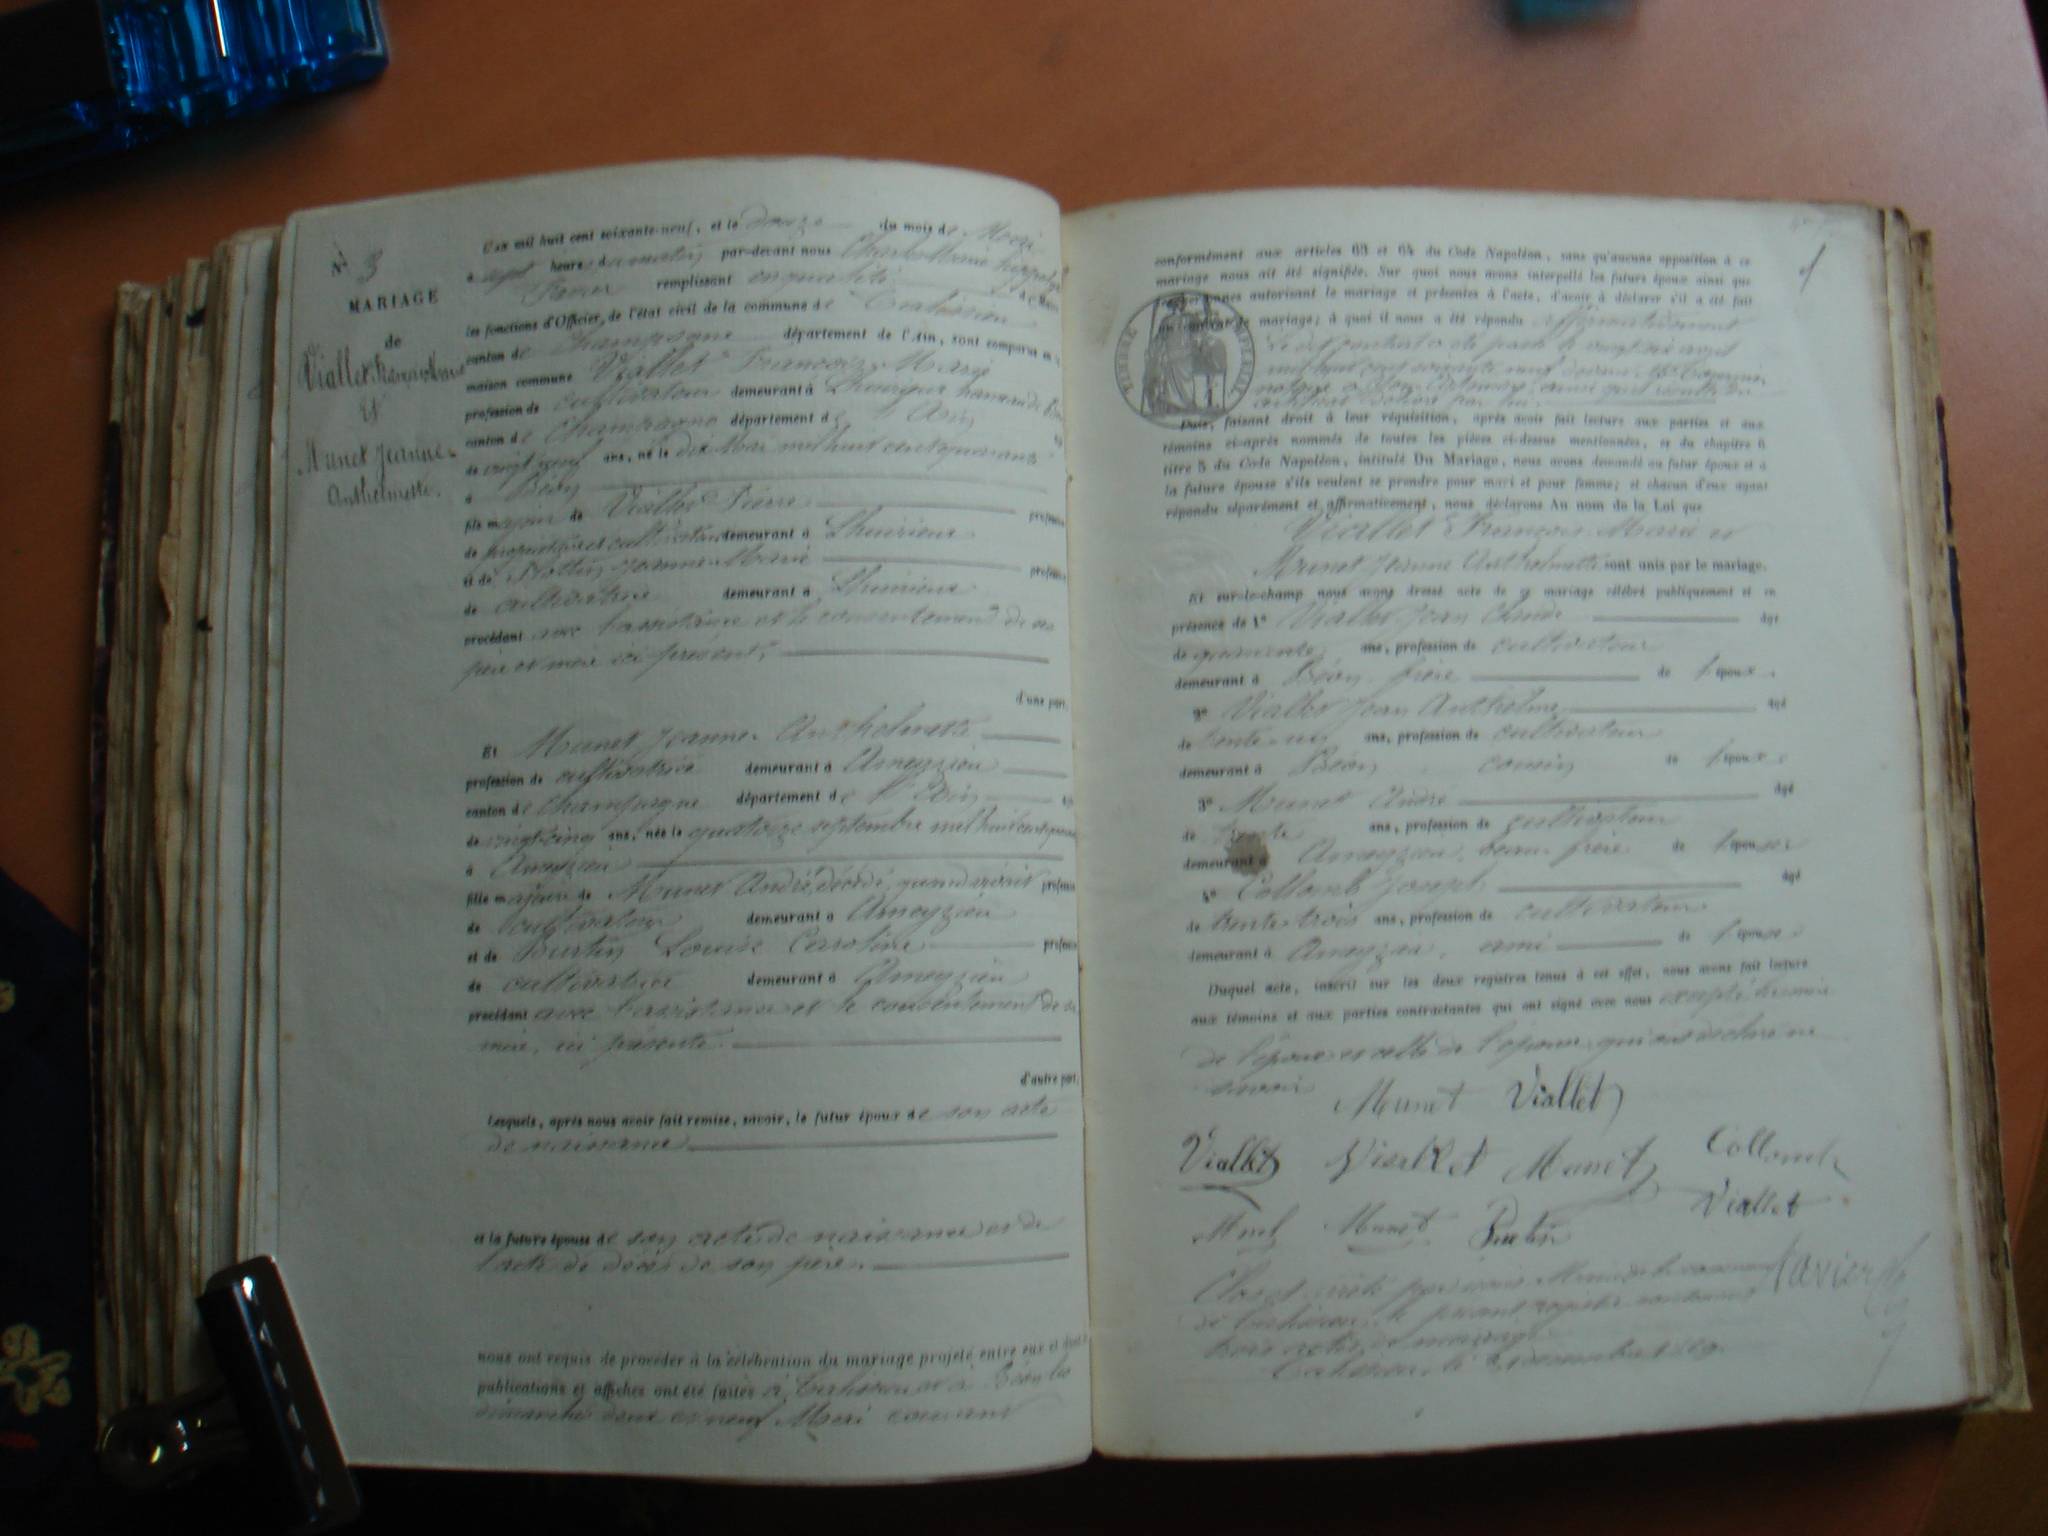 N° 3
MARIAGE
de
Viallet François Marie
et
Munet Jeanne
Anthelmette.
L'an mil huit cent soixante-neuf, et le douze du mois de Mai
à sept heures du matin par-devant nous Charles Marie hyppolyte
remplissant en qualité de Maire
les fonctions d'Officier de l'état civil de la commune de
canton de Champagne département de l'Ain, sont comparus en la
maison commune Viallet François Marie
profession de cultivateur demeurant à Lhuirieux hameau de Béon
canton de Champagne département de l'Ain
de vingt neuf ans, né le dix Mai mil huit cent quarante
à Béon
fils majeur de Viallet Pierre profession
de propriétaire et cultivateur demeurant à Lhuirieux
et de Jeanne Marie profession
de cultivatrice demeurant à Lhuirieux
procédant avec l'assistance et le consentement de ses
père et mère ici présents,
d'une part,
Et Munet Jeanne Anthelmette
profession de cultivatrice demeurant à Ameyzieu
canton de Champagne département de l'Ain
de vingt cinq ans, née le quatorze septembre mil huit cent quarante
à Ameyzieu
fille majeure de Munet André, décédé, quand vivait profession
de cultivateur demeurant à Ameyzieu
et de Burtin Louise Caroline profession
de cultivatrice demeurant à Ameyzieu
procédant avec l'assistance et le consentement de sa
mère, ici présente.
d'autre part,
Lesquels, après nous avoir fait remise, savoir, le futur époux de son acte
de naissance
et la future épouse de son acte de naissance et de
l'acte de décès de son père.
nous ont requis de procéder à la célébration du mariage projeté entre eux et dont les
publications et affiches ont été faites à et à Béon les
dimanches deux et neuf Mai courant
conformément aux articles 63 et 64 du Code Napoléon, sans qu'aucune opposition à ce
mariage nous ait été signifiée. Sur quoi nous avons interpellé les futurs époux ainsi que
les personnes autorisant le mariage et présentes à l'acte, d'avoir à déclarer s'il a été fait
un contrat de mariage; à quoi il nous a été répondu affirmativement
TIMBRE IMPERIAL
Le dit contrat a été passé le vingt six avril
mil huit cent soixante neuf devant Me
notaire à
certificat délivré par lui.
Puis, faisant droit à leur réquisition, après avoir fait lecture aux parties et aux
témoins ci-après nommés de toutes les pièces ci-dessus mentionnées, et du chapitre 6
titre 5 du Code Napoléon, intitulé Du Mariage, nous avons demandé au futur époux et à
la future épouse s'ils veulent se prendre pour mari et pour femme; et chacun d'eux ayant
répondu séparément et affirmativement, nous déclarons Au nom de la Loi que
Viallet François Marie et
Munet Jeanne Anthelmette sont unis par le mariage.
Et sur-le-champ nous avons dressé acte de ce mariage célébré publiquement et en
présence de 1° Viallet Jean Claude âgé
de quarante ans, profession de cultivateur
demeurant à Béon, frère de l'époux.
2° Viallet Jean Anthelme âgé
de ans, profession de cultivateur
demeurant à Béon cousin de l'époux.
3° Munet André âgé
de trente ans, profession de cultivateur
demeurant à Ameyzieu, frère de l'épouse
4° Collomb Joseph âgé
de trente trois ans, profession de cultivateur
demeurant à Ameyzieu, ami de l'épouse.
Duquel acte, inscrit sur les deux registres tenus à cet effet, nous avons fait lecture
aux témoins et aux parties contractantes qui ont signé avec nous excepté la mère
de l'époux et celle de l'épouse, qui ont déclaré ne
savoir
Munet Viallet
Viallet Viallet Munet Collomb
Munet Burtin Viallet
Clos et arrêté par nous Maire de la commune
de le présent registre contenant
trois actes de mariage.
le 31 décembre 1869.